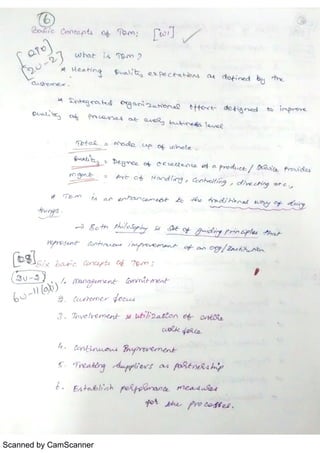 6
Basic Concepts of TQM: [W1]
What is TQM?
* Meeting Quality expectations as defined by the
customer.
* Integrated organizational effort designed to improve
Quality of processes at every business level
Total = made up of whole.
Quality = Degree of excellence of a product / Service provides
mgmt = Art of Handling, Controlling, directing etc.,
* TQM is an enhancement to the traditional way of doing
things.
→ Both Philosophy & set of guiding principles that
represent Continuous improvement of an
Six basic Concepts of TQM:
1. management Commitment
2. Customer focus
3. Involvement & utilization of entire
work force
4. Continuous Improvement
5. Treating Suppliers as partnership
6. Establish performance measures
for the processes.
Scanned by CamScanner